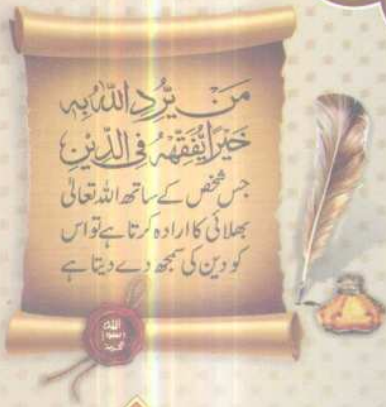 مَنْ يُّرِدِ اللّٰهُ بِهٖ
خَيْرًا يُّفَقِّهْهُ فِی الدِّیْنِ
جس شخص کے ساتھ اللہ تعالیٰ
بھلائی کا ارادہ کرتا ہے تو اس
کو دین کی سمجھ دے دیتا ہے
اللہ